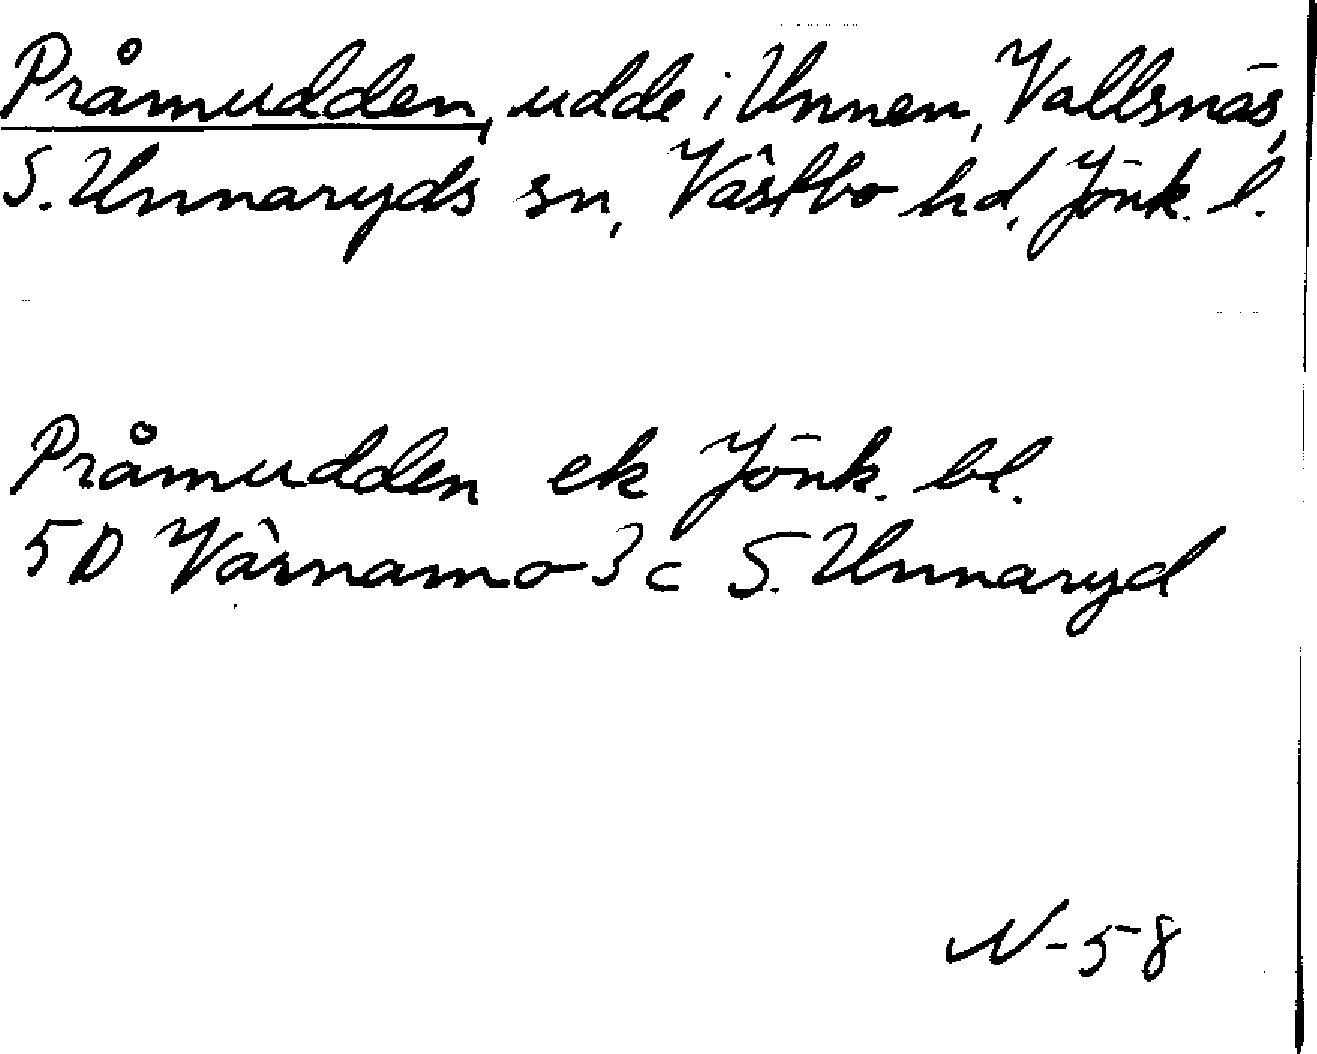 Pråmudden, udde i Unnen, Vallsnäs,
S. Unnaryds sn, Västbo hd, Jönk. l.
Pråmudden ek Jönk. bl.
5D Värnamo 3c S. Unnaryd
N-58